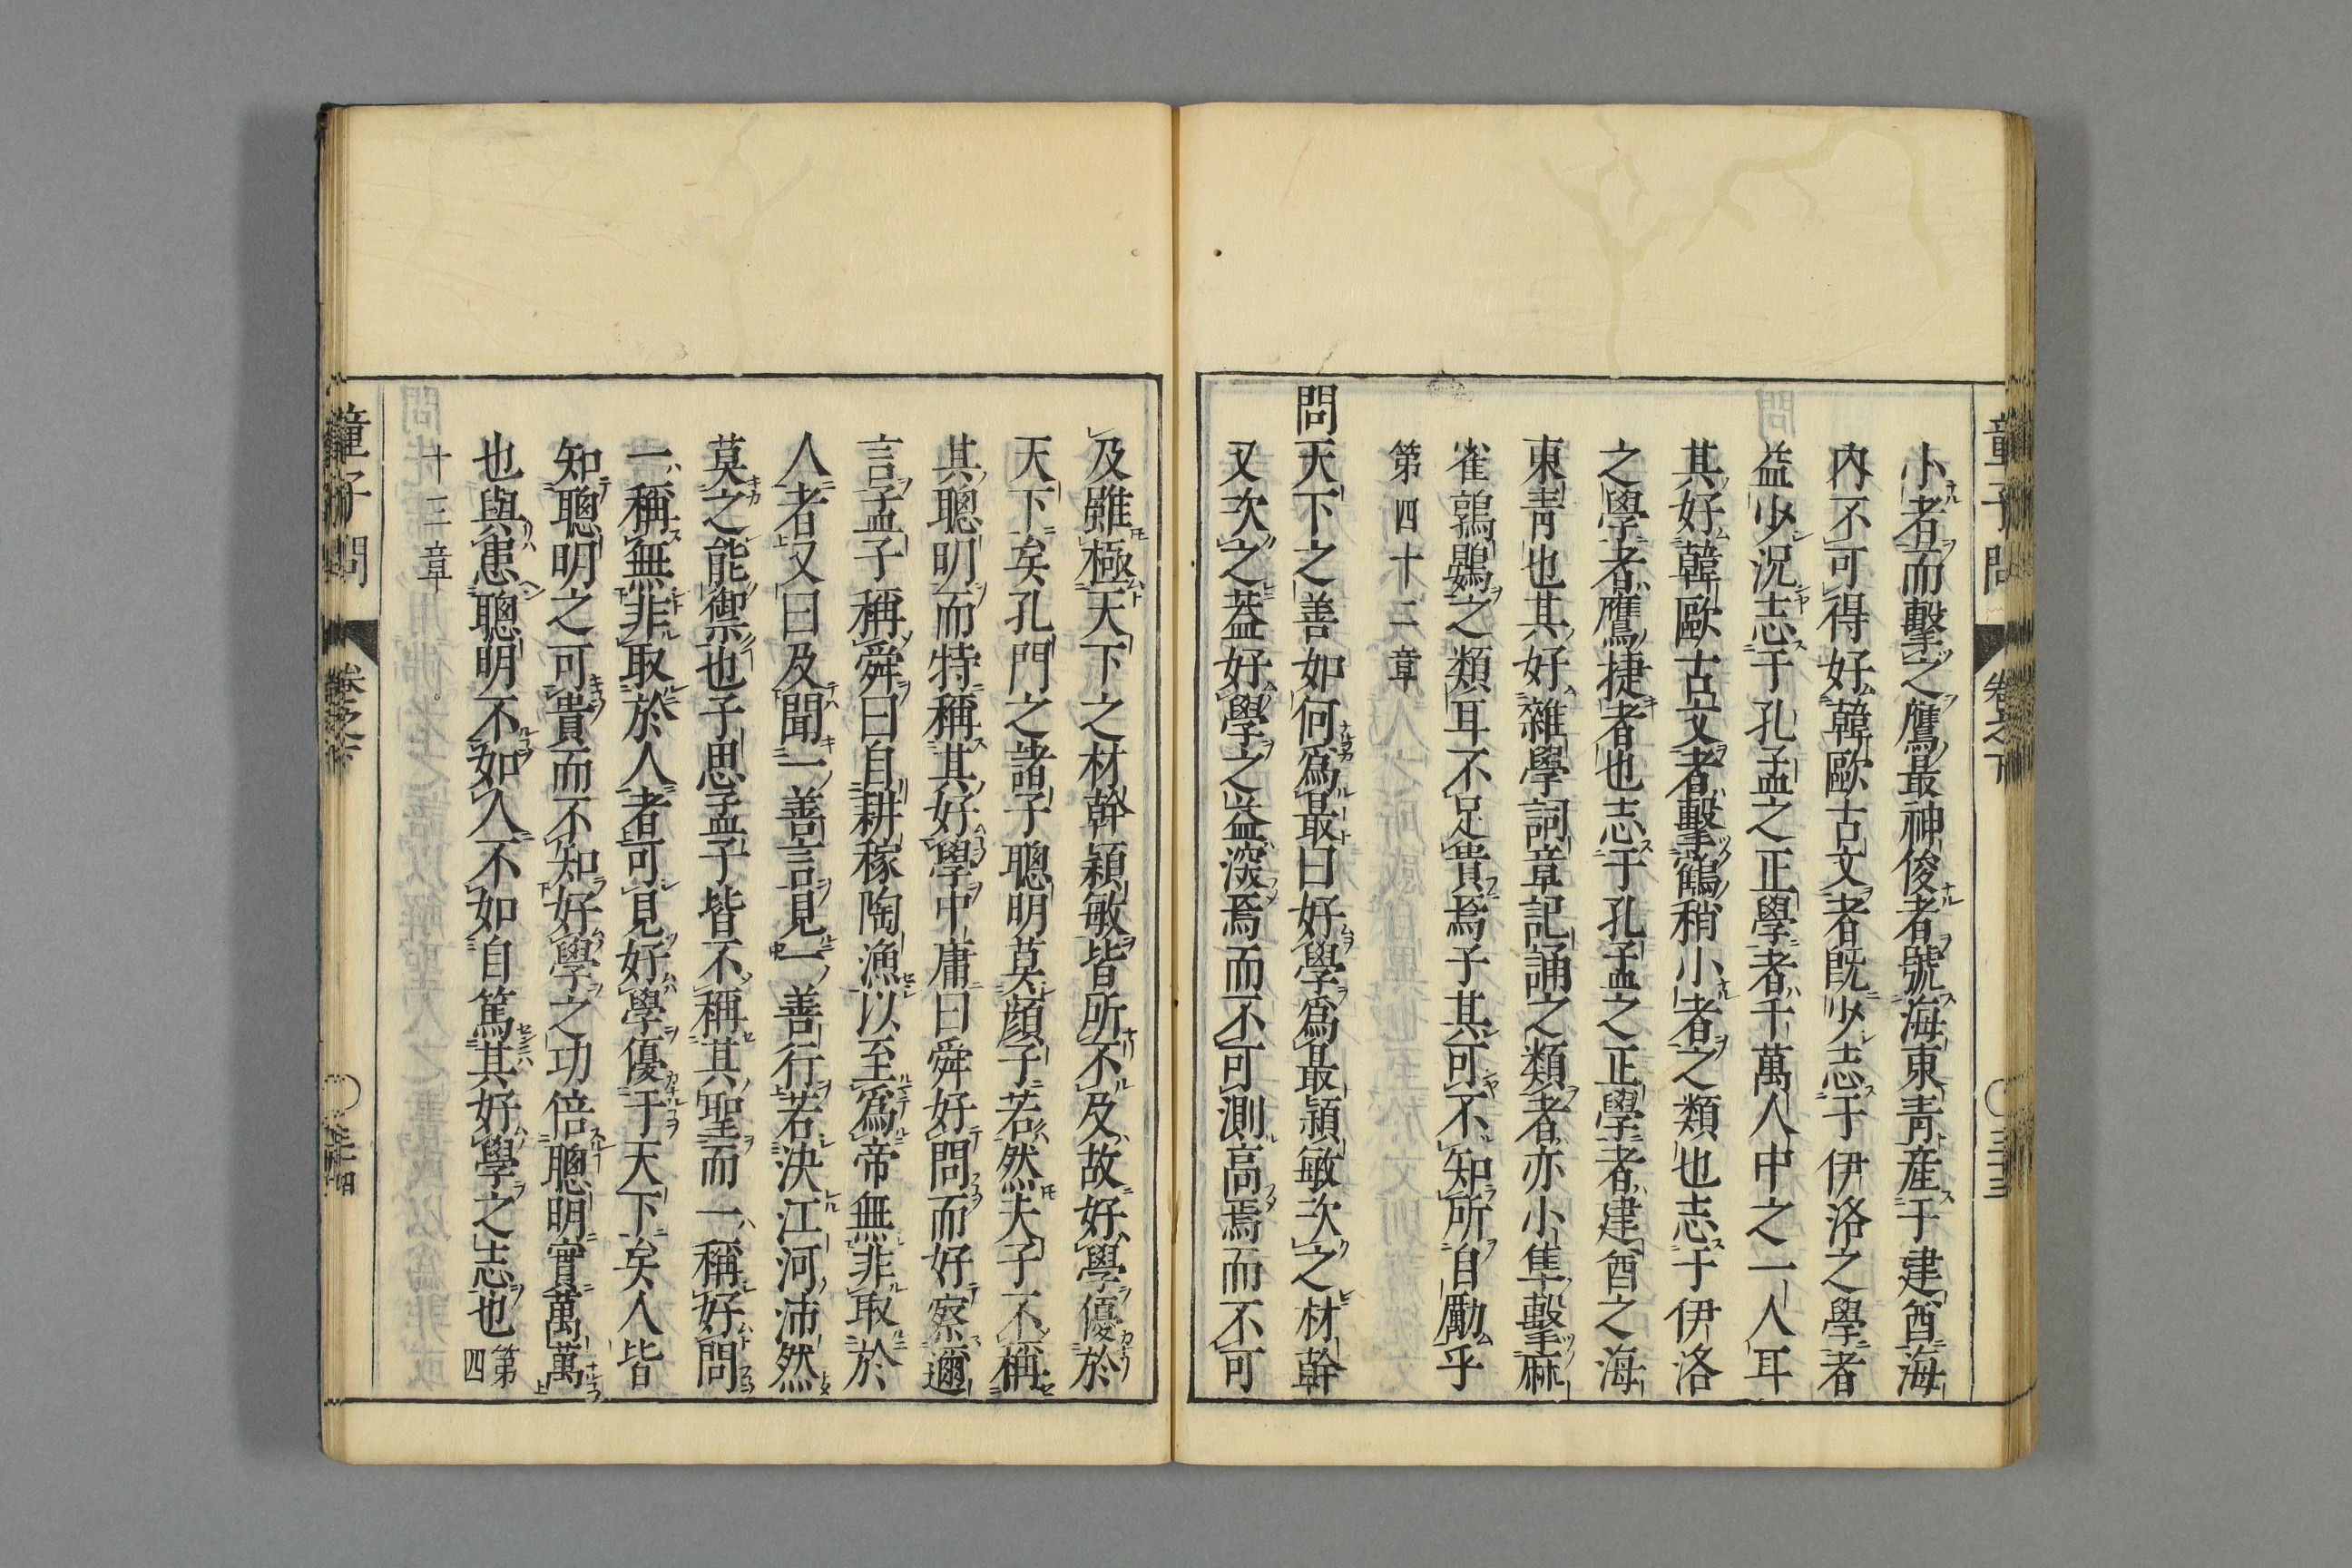 童子問 卷之下 〇 三十三
小者而擊之鷹最神俊者號海東靑産于建酋海
內不可得好韓歐古文者旣少志于伊洛之學者
益少況志于孔孟之正學者千萬人中之一人耳
其好韓歐古文者擊鶴稍小者之類也志于伊洛
之學者鷹捷者也志于孔孟之正學者建酋之海
東靑也其好雜學詞章記誦之類者亦小隼擊麻
雀鶉鷃之類耳不足貴焉子其可不知所自勵乎
第四十二章
問天下之善如何爲最曰好學爲最頴敏次之材幹
又次之蓋好學之益深焉而不可測高焉而不可
及雖極天下之材幹穎敏皆所不及故好學優於
天下矣孔門之諸子聰明莫顏子若然夫子不稱
其聰明而特稱其好學中庸曰舜好問而好察邇
言孟子稱舜曰自耕稼陶漁以至爲帝無非取於
人者又曰及聞一善言見一善行若決江河沛然
莫之能禦也子思孟子皆不稱其聖而一稱好問
一稱無非取於人者可見好學優于天下矣人皆
知聰明之可貴而不知好學之功倍聰明實萬萬
也與患聰明不如人不如自篤其好學之志也 第四
十三章
童子問 卷之下 〇 三十四